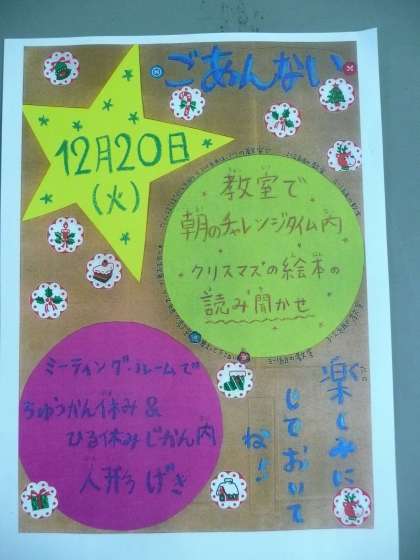 ごあんない
12月20日
(火)
教室で
朝のチャレンジタイム内
クリスマスの絵本の
読み聞かせ
ミーティング・ルームで
ちゅうかん休み&
ひる休みじかん内
人形げき
楽しみに
しておいて
ね!!